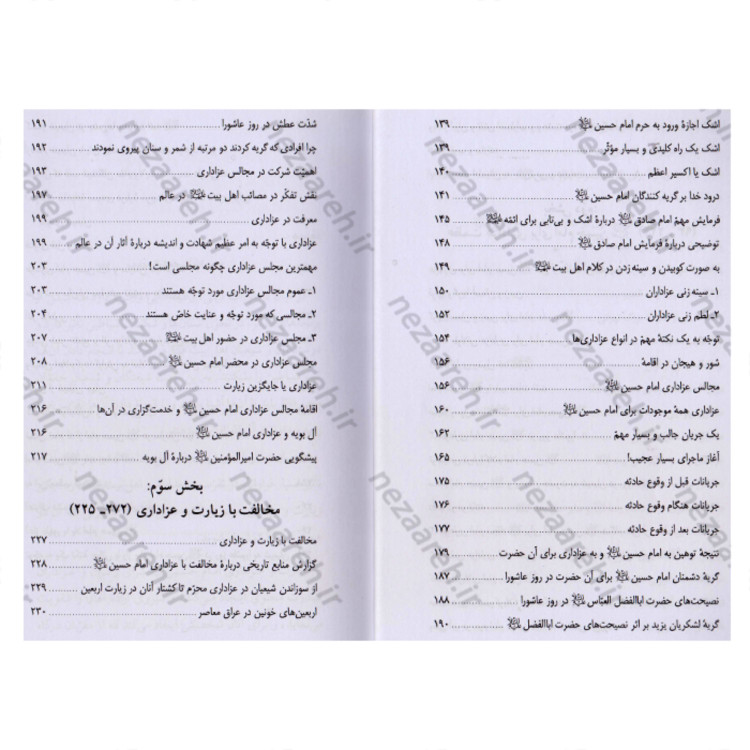 اشک اجازهٔ ورود به حرم امام حسین ﷷ ۱۳۹
اشک یک راه کلیدی و بسیار مؤثّر ۱۳۹
اشک یا اکسیر اعظم ۱۴۰
درود خدا بر گریه کنندگان امام حسین ۱۴۱
فرمایش مهمّ امام صادق دربارهٔ اشک و بی‌تابی برای ائمّه ۱۴۵
توضیحی دربارهٔ فرمایش امام صادق ۱۴۸
به صورت کوبیدن و سینه زدن در کلام اهل بیت ۱۴۹
۱ـ سینه زنی عزاداران ۱۵۰
۲ـ لطم زنی عزاداران ۱۵۲
توجّه به یک نکتهٔ مهمّ در انواع عزاداری‌ها ۱۵۴
شور و هیجان در اقامهٔ ۱۵۶
مجالس عزاداری امام حسین ۱۵۶
عزاداری همهٔ موجودات برای امام حسین ۱۶۰
یک جریان جالب و بسیار مهمّ ۱۶۲
آغاز ماجرای بسیار عجیب! ۱۶۵
جریانات قبل از وقوع حادثه ۱۷۵
جریانات هنگام وقوع حادثه ۱۷۶
جریانات بعد از وقوع حادثه ۱۷۷
نتیجهٔ توهین به امام حسین و به عزاداری برای آن حضرت ۱۷۹
گریهٔ دشمنان امام حسین برای آن حضرت در روز عاشورا ۱۸۷
نصیحت‌های حضرت اباالفضل العبّاس در روز عاشورا ۱۸۸
گریهٔ لشکریان یزید بر اثر نصیحت‌های حضرت اباالفضل ۱۹۰
شدّت عطش در روز عاشورا ۱۹۱
چرا افرادی که گریه کردند دو مرتبه از شمر و سنان پیروی نمودند ۱۹۲
اهمیّت شرکت در مجالس عزاداری ۱۹۳
نقش تفکّر در مصائب اهل بیت در عالم ۱۹۷
معرفت در عزاداری ۱۹۹
عزاداری با توجّه به امر عظیم شهادت و اندیشه دربارهٔ آثار آن در عالم ۱۹۹
مهمترین مجلس عزاداری چگونه مجلسی است! ۲۰۳
۱ـ عموم مجالس عزاداری مورد توجّه هستند ۲۰۳
۲ـ مجالسی که مورد توجّه و عنایت خاصّ هستند ۲۰۴
۳ـ مجلس عزاداری در حضور اهل بیت ۲۰۷
مجلس عزاداری در محضر امام حسین ۲۰۸
عزاداری یا جایگزین زیارت ۲۱۱
اقامهٔ مجالس عزاداری امام حسین و خدمت‌گزاری در آن‌ها ۲۱۶
آل بویه و عزاداری امام حسین ۲۱۶
پیشگویی حضرت امیرالمؤمنین دربارهٔ آل بویه ۲۱۷
بخش سوّم:
مخالفت با زیارت و عزاداری (۲۷۲ـ ۲۲۵)
مخالفت با زیارت و عزاداری ۲۲۷
گزارش منابع تاریخی دربارهٔ مخالفت با عزاداری امام حسین ۲۲۸
از سوزاندن شیعیان در عزاداری محرّم تا کشتار آنان در زیارت اربعین ۲۲۹
اربعین‌های خونین در عراق معاصر ۲۳۰
nezaareh.ir